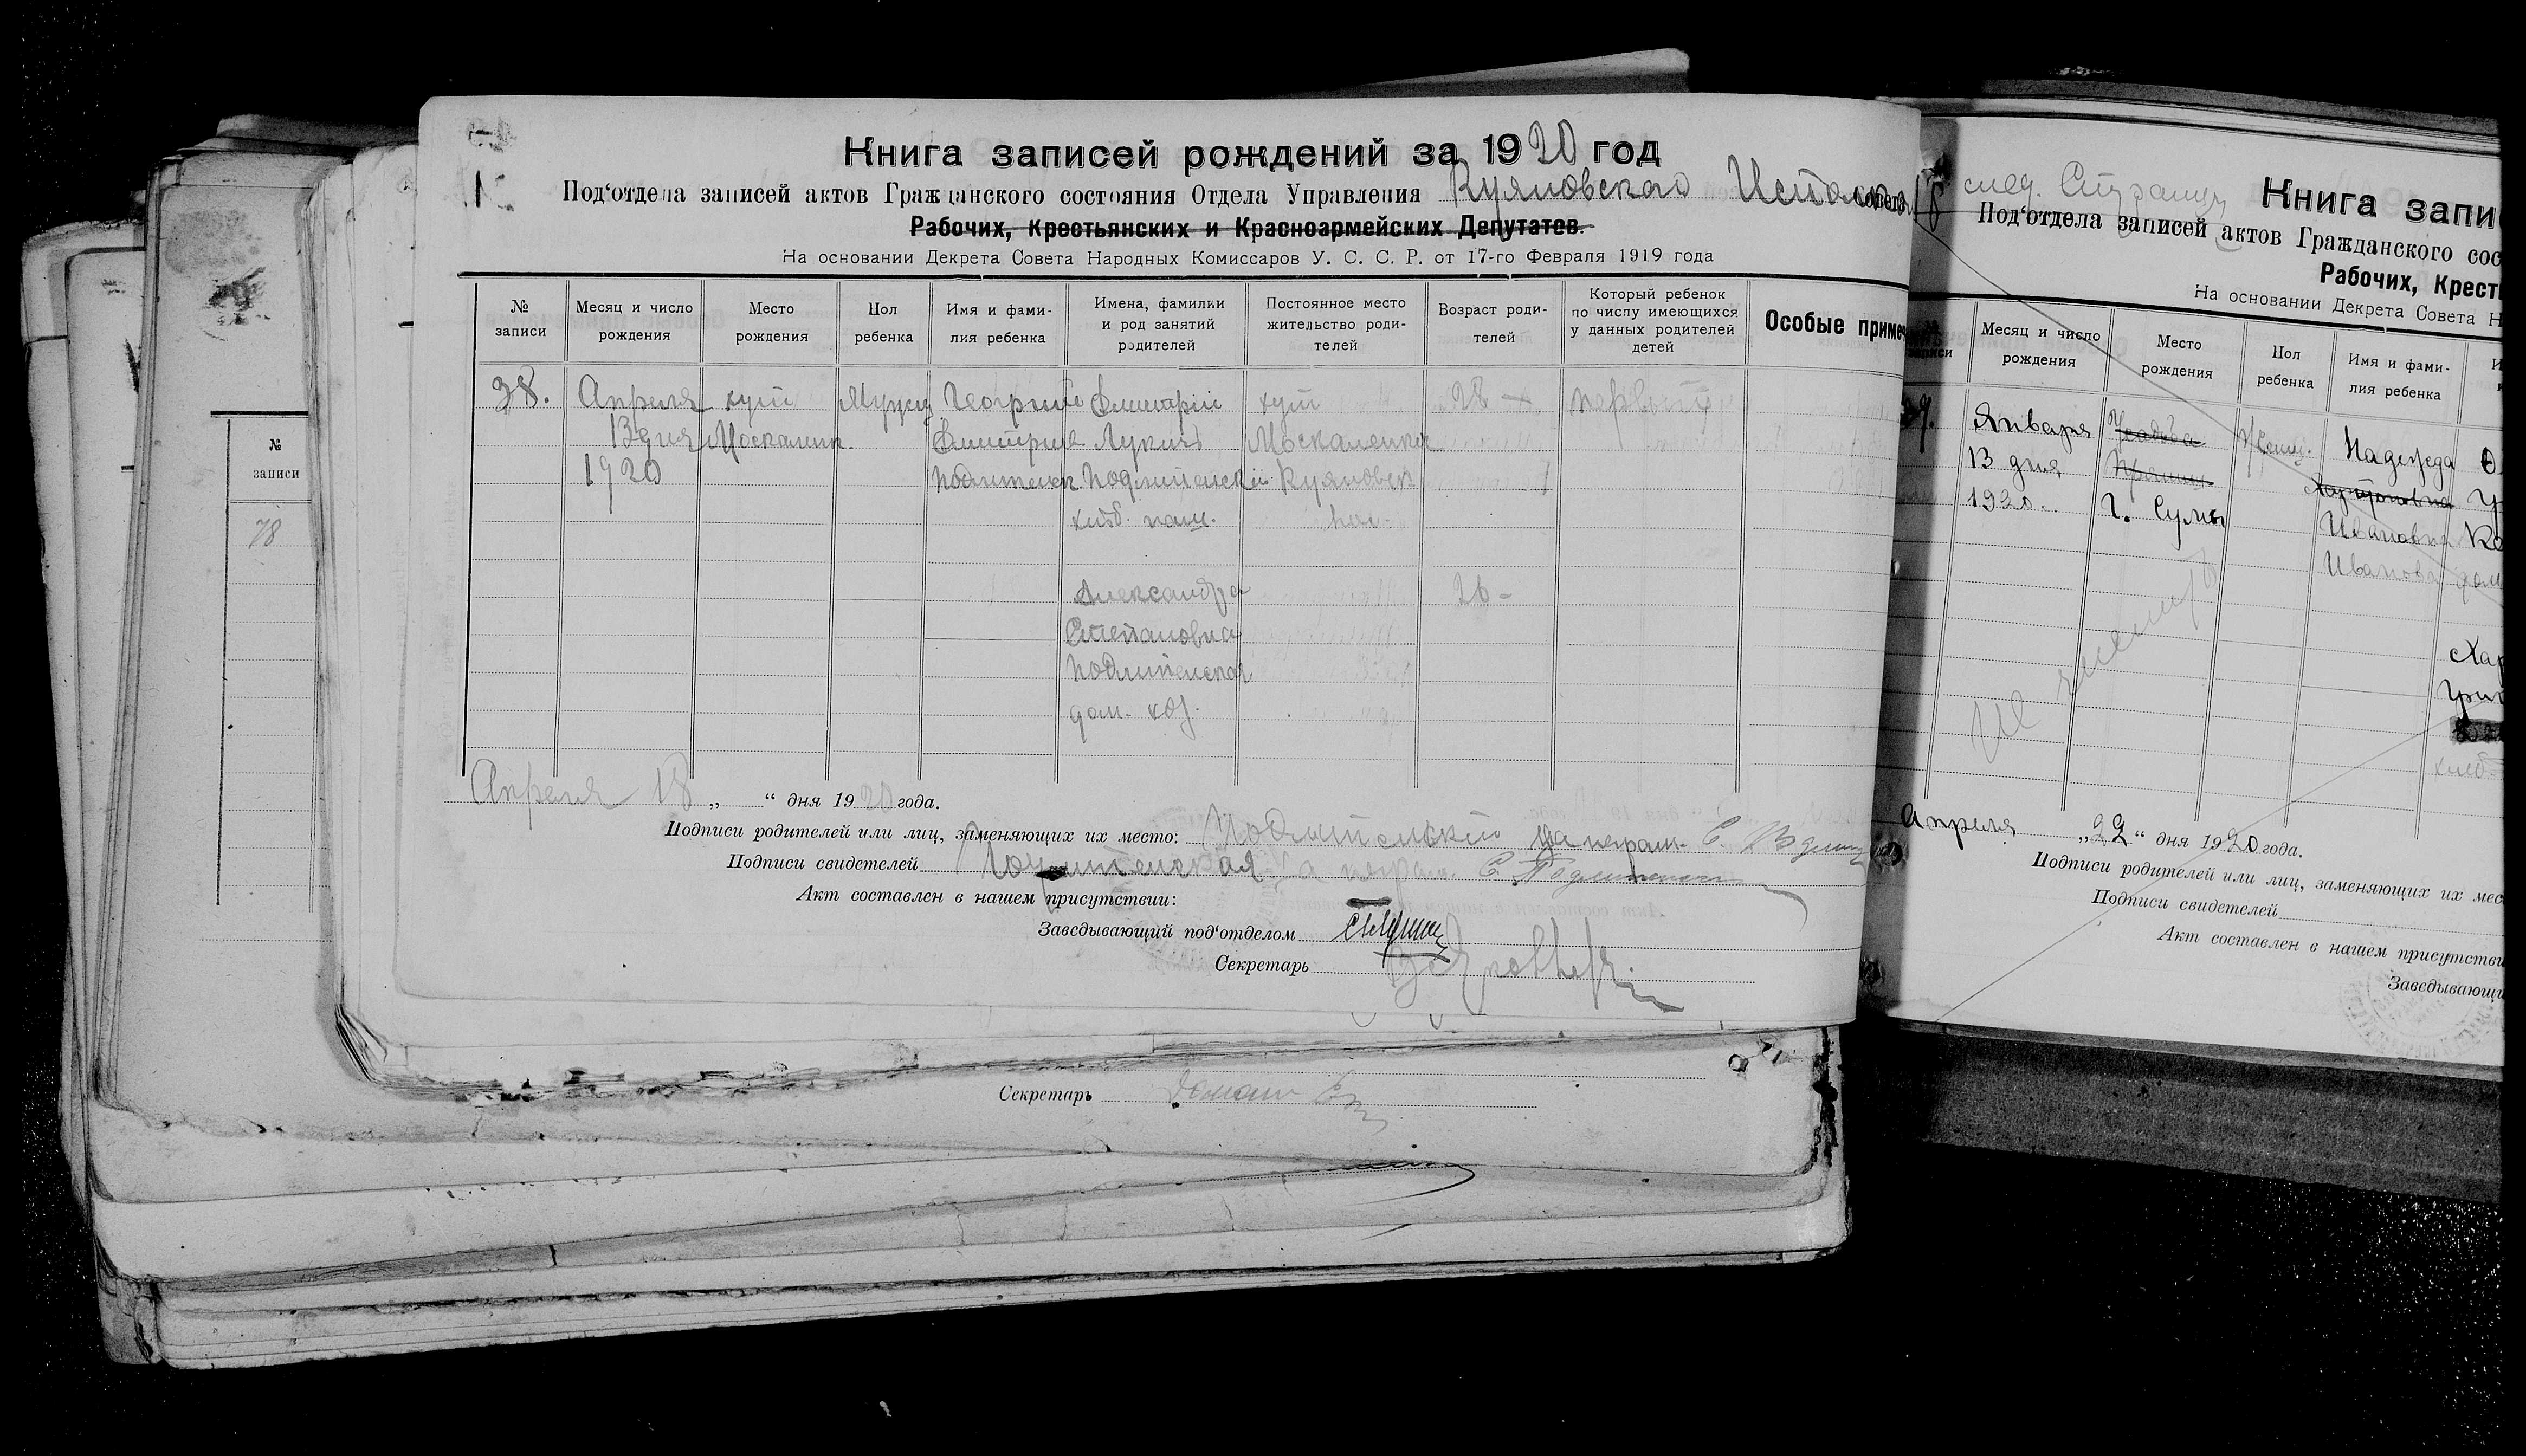 Книга записей рождений за 1920 год
Под‘отдела записей актов Гражданского состояния Отдела Управления Куяновского
Рабочих, Крестьянских и Красноармейских Депутатов.
На основании Декрета Совета Народных Комиссаров У. С. С. Р. от 17-го Февраля 1919 года
№ записи
Месяц и число рождения
Место рождения
Пол ребенка
Имя и фами-
лия ребенка
Имена, фамилии
и род занятий
родителей
Постоянное место
жительство роди-
телей
Возраст роди-
телей
Который ребенок
по числу имеющихся
у данных родителей
детей
Особые примеч
38.
Апреля
13 дня
1920
хут
Москаленк.
Мужск
Георгий
Дмитрий
Лукич
Подлитенскій
хлеб. паш.
Александра
Степановна
Подлитенская
дом. хоз.
хут
Москаленка
Куяновск
28
26 -
первый
Апреля 18 „ “ дня 1920 года.
Подписи родителей или лиц, заменяющих их место: Подлитенскій
Подписи свидетелей
Акт составлен в нашем присутствии:
Заведывающий под‘отделом
Секретарь
Секретарь
№
записи
78
след. Страниц
Книга запи
Под‘отдела записей актов Гражданского сос
Рабочих, Крест
На основании Декрета Совета Н
записи
Месяц и число
рождения
Место
рождения
Пол
ребенка
Имя и фами-
лия ребенка
Января
13 дня
1920.
Усадьба
г. Сумы
Женщ.
Надежда
Ивановна
Иванова
Апреля „22“ дня 1920 года.
Подписи родителей или лиц, заменяющих их мес
Подписи свидетелей
Акт составлен в нашем присутстви
Заведывающи